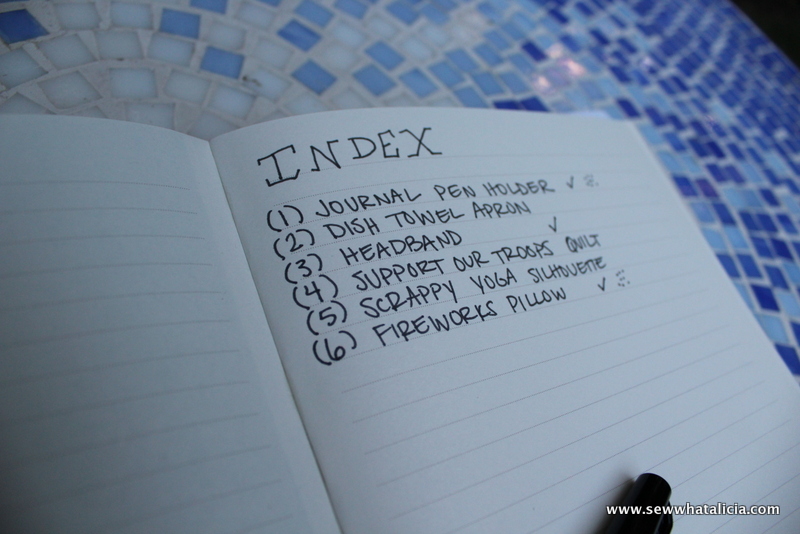 INDEX
(1) JOURNAL PEN HOLDER ✓
(2) DISH TOWEL APRON
(3) HEADBAND ✓
(4) SUPPORT OUR TROOPS QUILT
(5) SCRAPPY YOGA SILHOUETTE
(6) FIREWORKS PILLOW ✓
www.sewwhatalicia.com